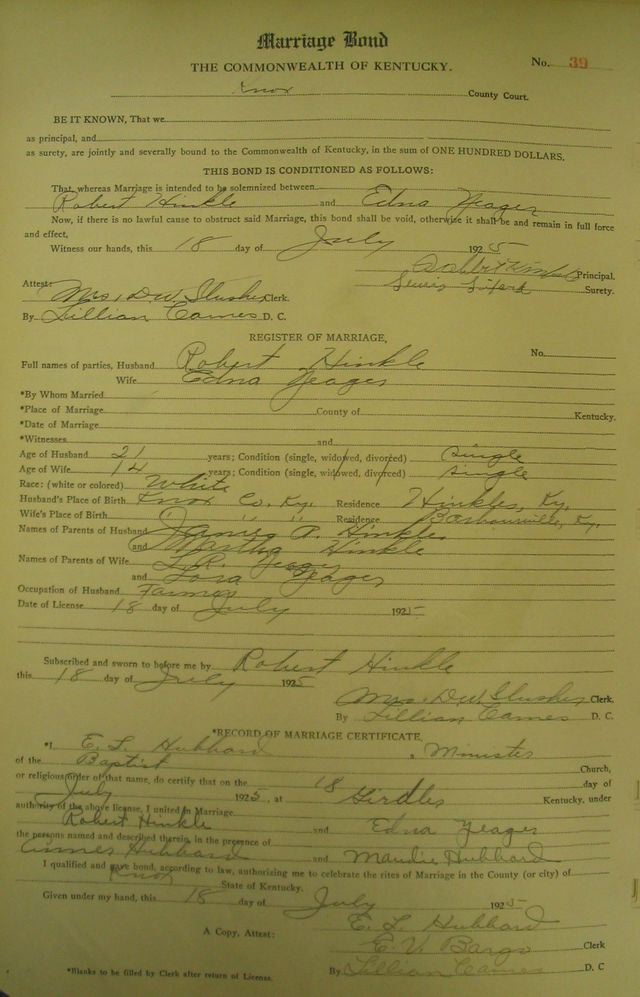 Marriage Bond
THE COMMONWEALTH OF KENTUCKY.
No. 39
Knox County Court.
BE IT KNOWN, That we
as principal, and
as surety, are jointly and severally bound to the Commonwealth of Kentucky, in the sum of ONE HUNDRED DOLLARS.
THIS BOND IS CONDITIONED AS FOLLOWS:
That whereas Marriage is intended to be solemnized between
Robert Hinkle and Edna Yeager
Now, if there is no lawful cause to obstruct said Marriage, this bond shall be void, otherwise it shall be and remain in full force
and effect,
Witness our hands, this 18 day of July 1925
Robert Hinkle Principal.
Attest: Surety.
Mrs. D W Slusher Clerk.
By Lillian Carnes D. C.
REGISTER OF MARRIAGE,
No.
Full names of parties, Husband Robert Hinkle
Wife Edna Yeager
*By Whom Married
*Place of Marriage County of Kentucky.
*Date of Marriage
*Witnesses and
Age of Husband 21 years; Condition (single, widowed, divorced) single
Age of Wife 14 years; Condition (single, widowed, divorced) single
Race: (white or colored) White
Husband's Place of Birth Knox Co. Ky. Residence Hinkles, Ky.
Wife's Place of Birth " " " Residence Barbourville, Ky.
Names of Parents of Husband A. Hinkle
and Martha Hinkle
Names of Parents of Wife L.R. Yeager
and Lora Yeager
Occupation of Husband Farmer
Date of License 18 day of July 1925
Subscribed and sworn to before me by Robert Hinkle
this 18 day of July 1925
Mrs. D W Slusher Clerk.
By Lillian Carnes D. C.
*RECORD OF MARRIAGE CERTIFICATE,
*I, E. L. Hubbard, Minister
of the Baptist Church,
or religious order of that name, do certify that on the 18 day of
July 1925, at Girdler Kentucky, under
authority of the above license, I united in Marriage
Robert Hinkle and Edna Yeager
the persons named and described therein, in the presence of
Hubbard and Maudie Hubbard
I qualified and gave bond, according to law, authorizing me to celebrate the rites of Marriage in the County (or city) of
Knox State of Kentucky.
Given under my hand, this 18 day of July 1925
E. L. Hubbard
A Copy, Attest: E. V. Bargo Clerk
*Blanks to be filled by Clerk after return of License. By Lillian Carnes D. C